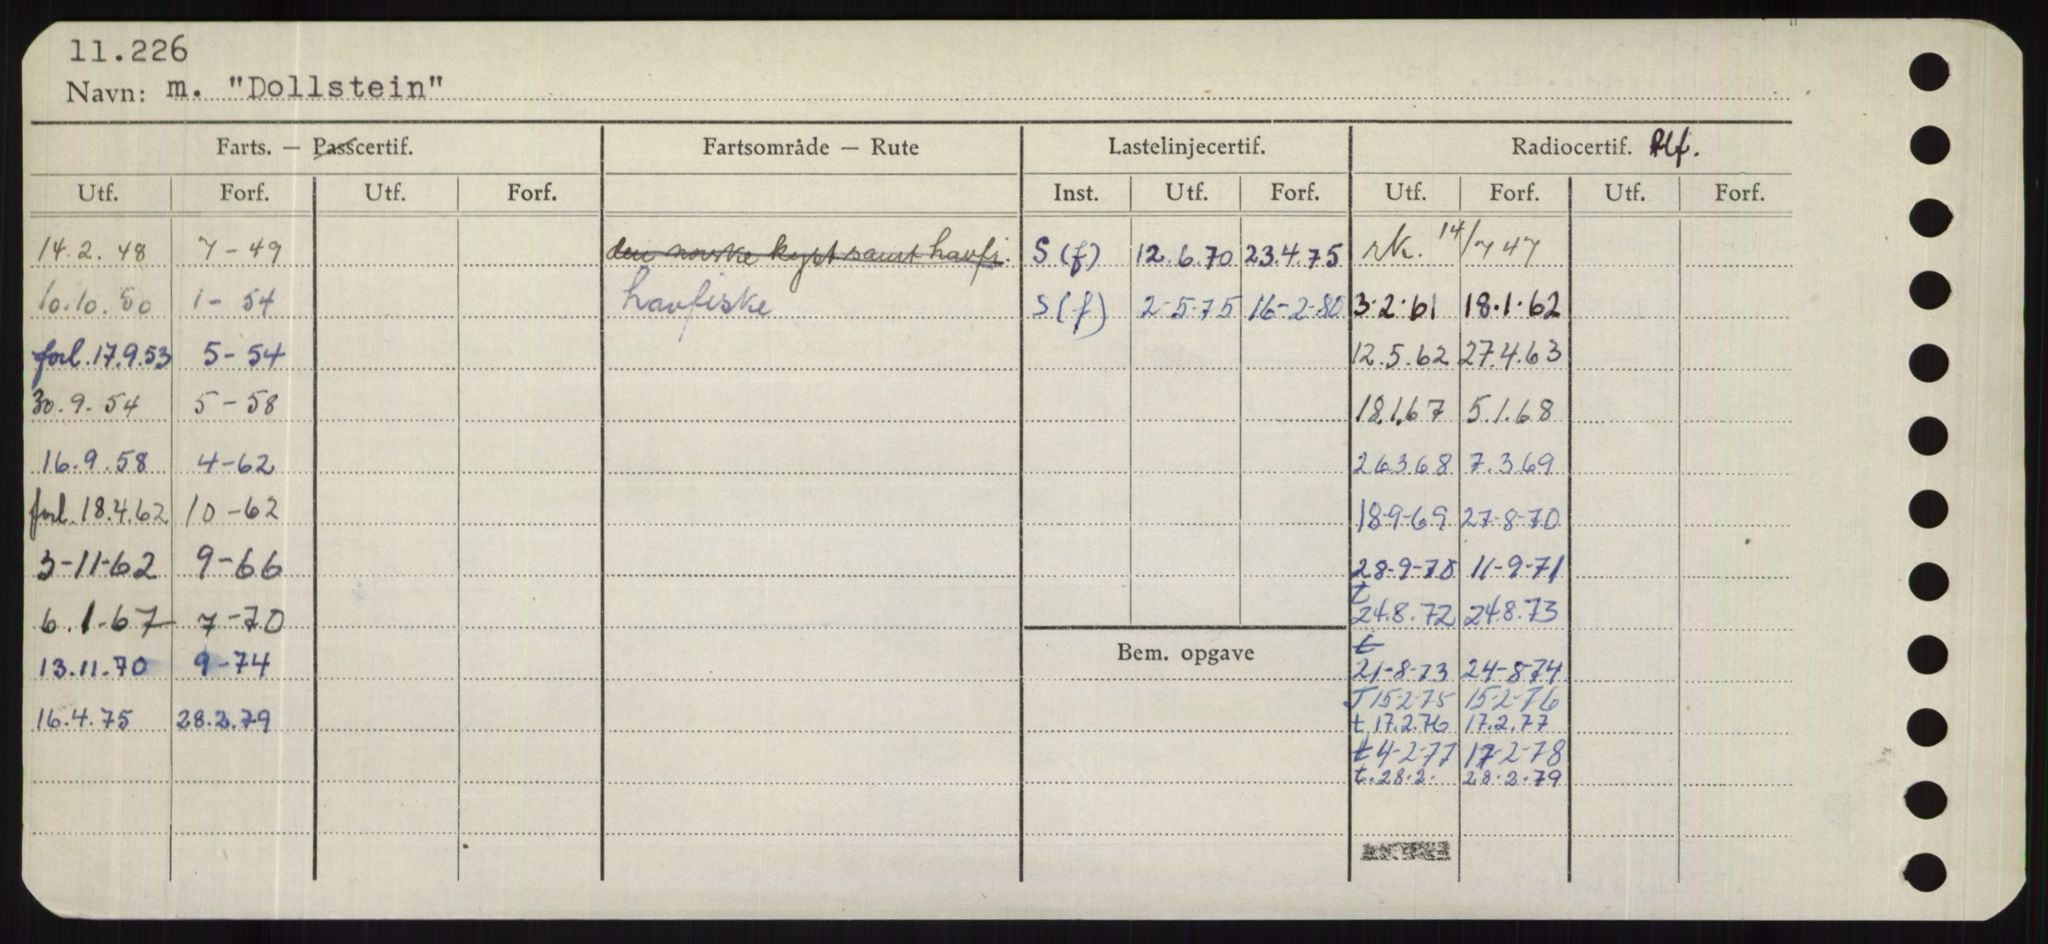 11.226
Navn: m. "Dollstein"
Farts. — Passcertif. Fartsområde — Rute Lastelinjecertif. Radiocertif. Rtf.
Utf. Forf. Utf. Forf. Inst. Utf. Forf. Utf. Forf. Utf. Forf.
14.2.48 7-49 den norske kyst samt havfi. S(f) 12.6.70 23.4.75 14/7 47
10.10.50 1-54 havfiske S(f) 2-5-75 16-2-80 3.2.61 18.1.62
forl. 17.9.53 5-54 12.5.62 27.4.63
30.9.54 5-58 18.1.67 5.1.68
16.9.58 4-62 26.3.68 7.3.69
forl. 18.4.62 10-62 18-9-69 27-8-70
3-11-62 9-66 28-9-70 11-9-71
t
6.1.67 7-70 24.8.72 24.8.73
t
13.11.70 9-74 21-8-73 24-8-74
T 15-2-75 15-2-76
16.4.75 28.2.79 t 17.2.76 17.2.77
t 4-2-77 17-2-78
t. 28.2. 28.2.79
Bem. opgave